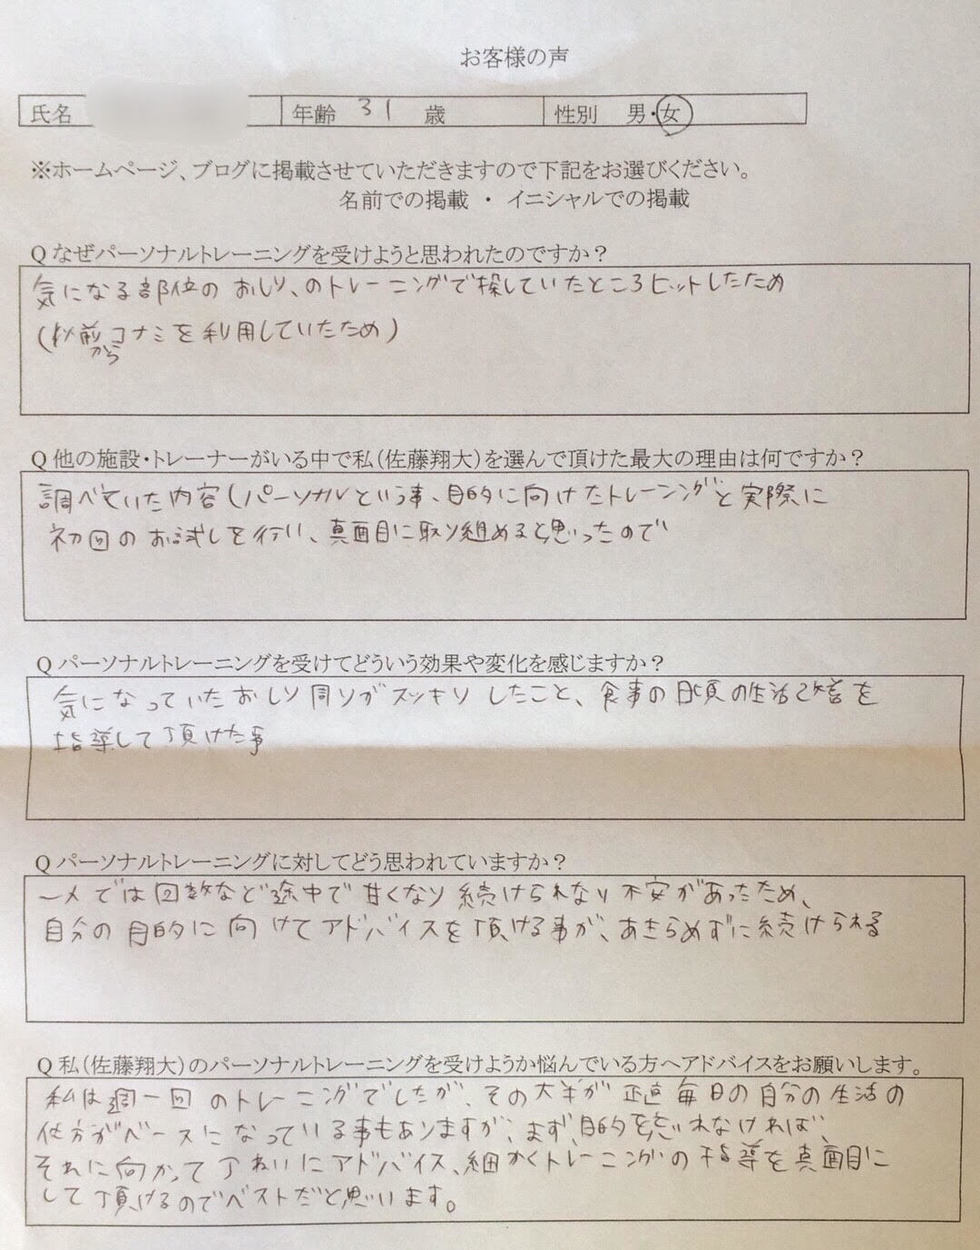 お客様の声
氏名 年齢 31 歳 性別 男・女
※ホームページ、ブログに掲載させていただきますので下記をお選びください。
名前での掲載 ・ イニシャルでの掲載
Q なぜパーソナルトレーニングを受けようと思われたのですか？
気になる部位の おしり、のトレーニングで探していたところヒットしたため
(以前からコナミを利用していたため)
Q 他の施設・トレーナーがいる中で私(佐藤翔大)を選んで頂けた最大の理由は何ですか？
調べていた内容(パーソナルという事、目的に向けたトレーニングと実際に
初回のお試しを行い、真面目に取り組めると思ったので
Q パーソナルトレーニングを受けてどういう効果や変化を感じますか？
気になっていたおしり周りがスッキリしたこと、食事の日頃の生活改善を
指導して頂けた事
Q パーソナルトレーニングに対してどう思われていますか？
一人では回数など途中で甘くなり続けられなり不安があったため、
自分の目的に向けてアドバイスを頂ける事が、あきらめずに続けられる
Q 私(佐藤翔大)のパーソナルトレーニングを受けようか悩んでいる方へアドバイスをお願いします。
私は週一回のトレーニングでしたが、その大半が正直毎日の自分の生活の
仕方がベースになっている事もありますが、まず、目的を忘れなければ、
それに向かって丁ねいにアドバイス、細かくトレーニングの指導を真面目に
して頂けるのでベストだと思います。